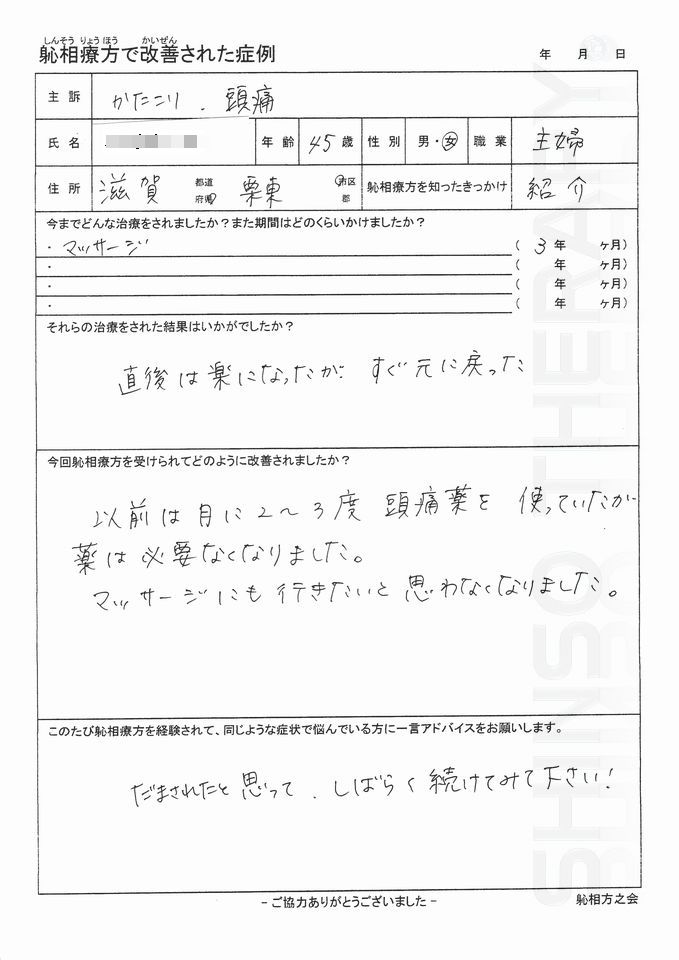 しんそう りょうほう かいぜん
恥相療方で改善された症例
年 月 日
主訴 かたこり . 頭痛
氏名 年齢 45歳 性別 男・女 職業 主婦
住所 滋賀 都道府県 栗東 市区郡 恥相療方を知ったきっかけ 紹介
今までどんな治療をされましたか？また期間はどのくらいかけましたか？
・マッサージ （ 3 年 ヶ月）
・ （ 年 ヶ月）
・ （ 年 ヶ月）
・ （ 年 ヶ月）
それらの治療をされた結果はいかがでしたか？
直後は楽になったが すぐ元に戻った
今回恥相療方を受けられてどのように改善されましたか？
以前は月に2～3度 頭痛薬を 使っていたが
薬は必要なくなりました。
マッサージにも行きたいと思わなくなりました。
このたび恥相療方を経験されて、同じような症状で悩んでいる方に一言アドバイスをお願いします。
だまされたと思って、しばらく続けてみて下さい！
- ご協力ありがとうございました -
恥相方之会
SHINSO THERAPY